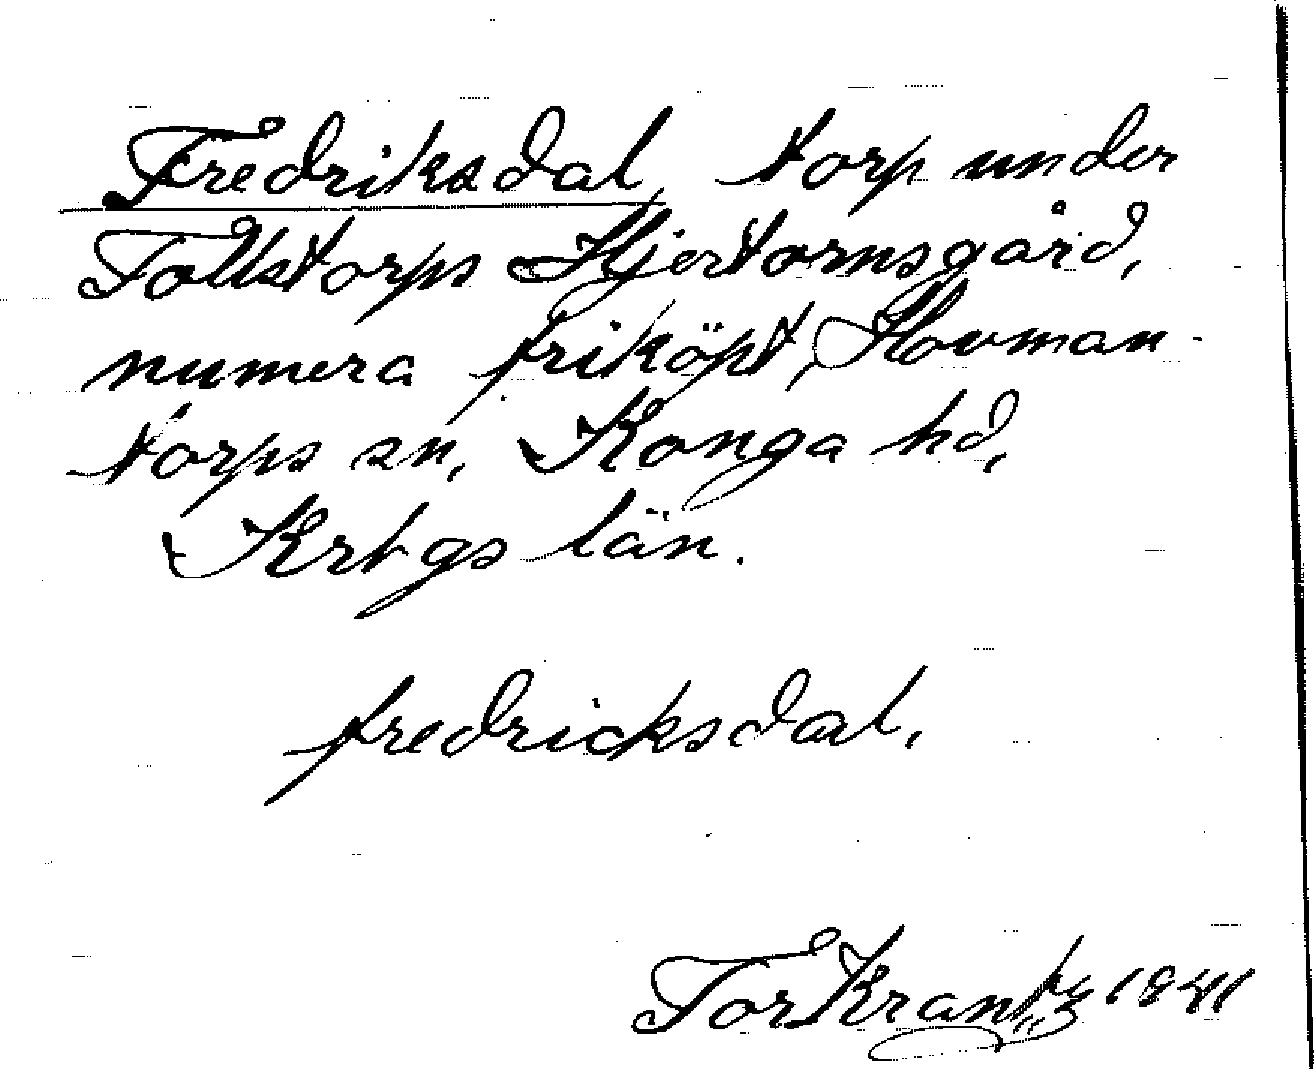 Fredriksdal, torp under
Tollstorps Hjertornsgård,
numera friköpt, Hovman-
torps sn, Konga hd,
Krbgs län.
fredricksdal,
Tor Krantz 1941